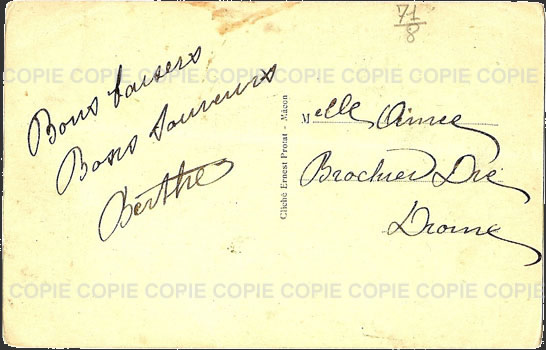 71/8
COPIE COPIE COPIE COPIE COPIE COPIE COPIE
Bons baisers
Bons Souvenirs
Berthe
Cliché Ernest Protat - Mâcon
Melle Aimée
Brochier Die
Drome
COPIE COPIE COPIE COPIE COPIE COPIE COPIE
COPIE COPIE COPIE COPIE COPIE COPIE COPIE